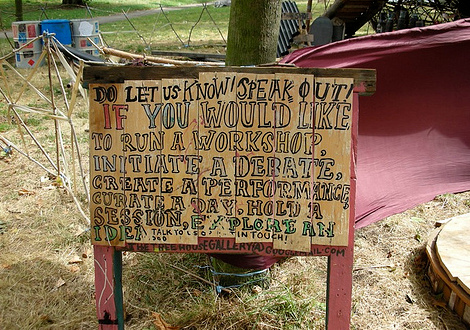 DO LET US KNOW! SPEAK OUT!
IF YOU WOULD LIKE
TO RUN A WORKSHOP,
INITIATE A DEBATE,
CREATE A PERFORMANCE,
CURATE A DAY, HOLD A
SESSION, EXPLORE AN
IDEA TALK TO US, IN TOUCH!